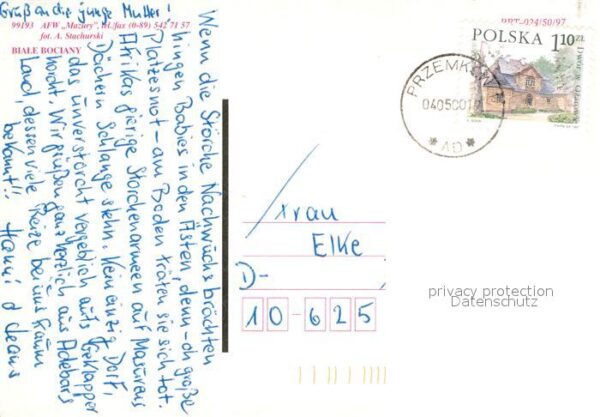 Grüße an die junge Mutter!
99193 AFW "Mazury", tel/fax (0-89) 542 71 57
fot. A. Stachurski
BIAŁE BOCIANY
Wenn die Störche Nachwuchs brächten
hingen Babies in den Ästen, denn – oh große
Platzesnot – am Boden träten sie sich tot.
Afrikas gierige Storchenarmeen auf Masurens
Dächern Schlange stehn. Kein einzig Dorf,
das unverstörcht vergeblich aufs Geklapper
horcht. Wir grüßen ganz herzlich aus Adebars
Land, dessen viele Reize bei uns kaum
bekannt!! Hanni & Claus
PRT-024/50/97
POLSKA 1,10 ZŁ
PRZEMK
040500
AD
Frau
Elke
D-
10-625
privacy protection
Datenschutz